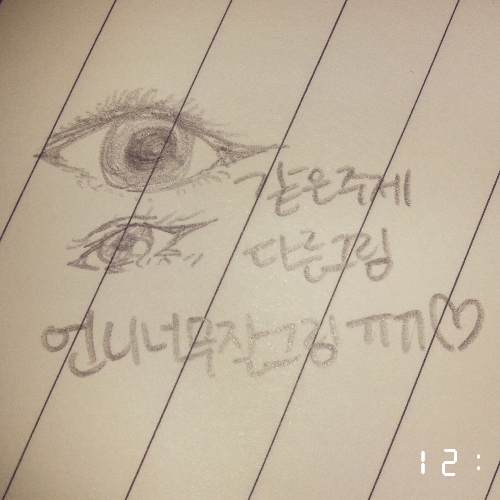 같은주제
다른그림
언니너무잘그림ㅠㅠ♡
12: